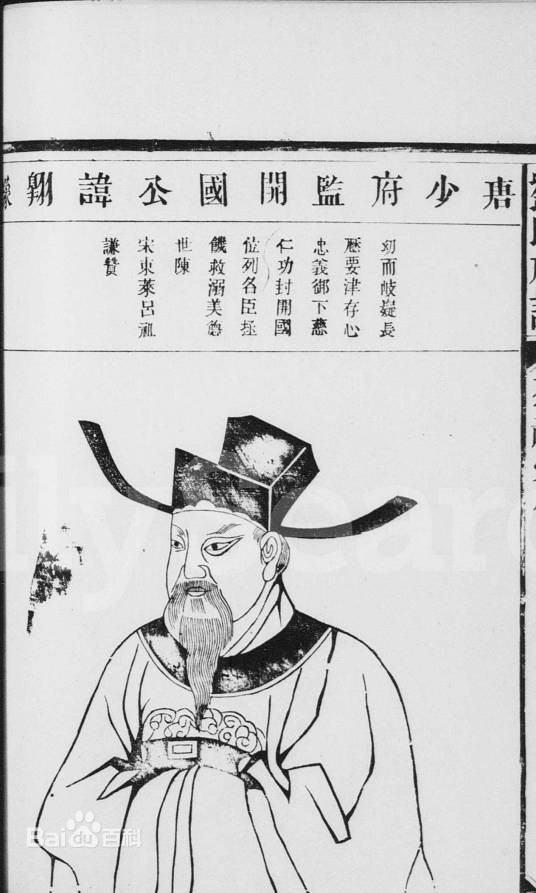 唐少府監開國公諱翱
幼而岐嶷長
歷要津存心
忠義御下慈
仁功封開國
位列名臣拯
饑救溺美
世陳
宋東萊呂祖
謙贊
ily Searc
Bai百科